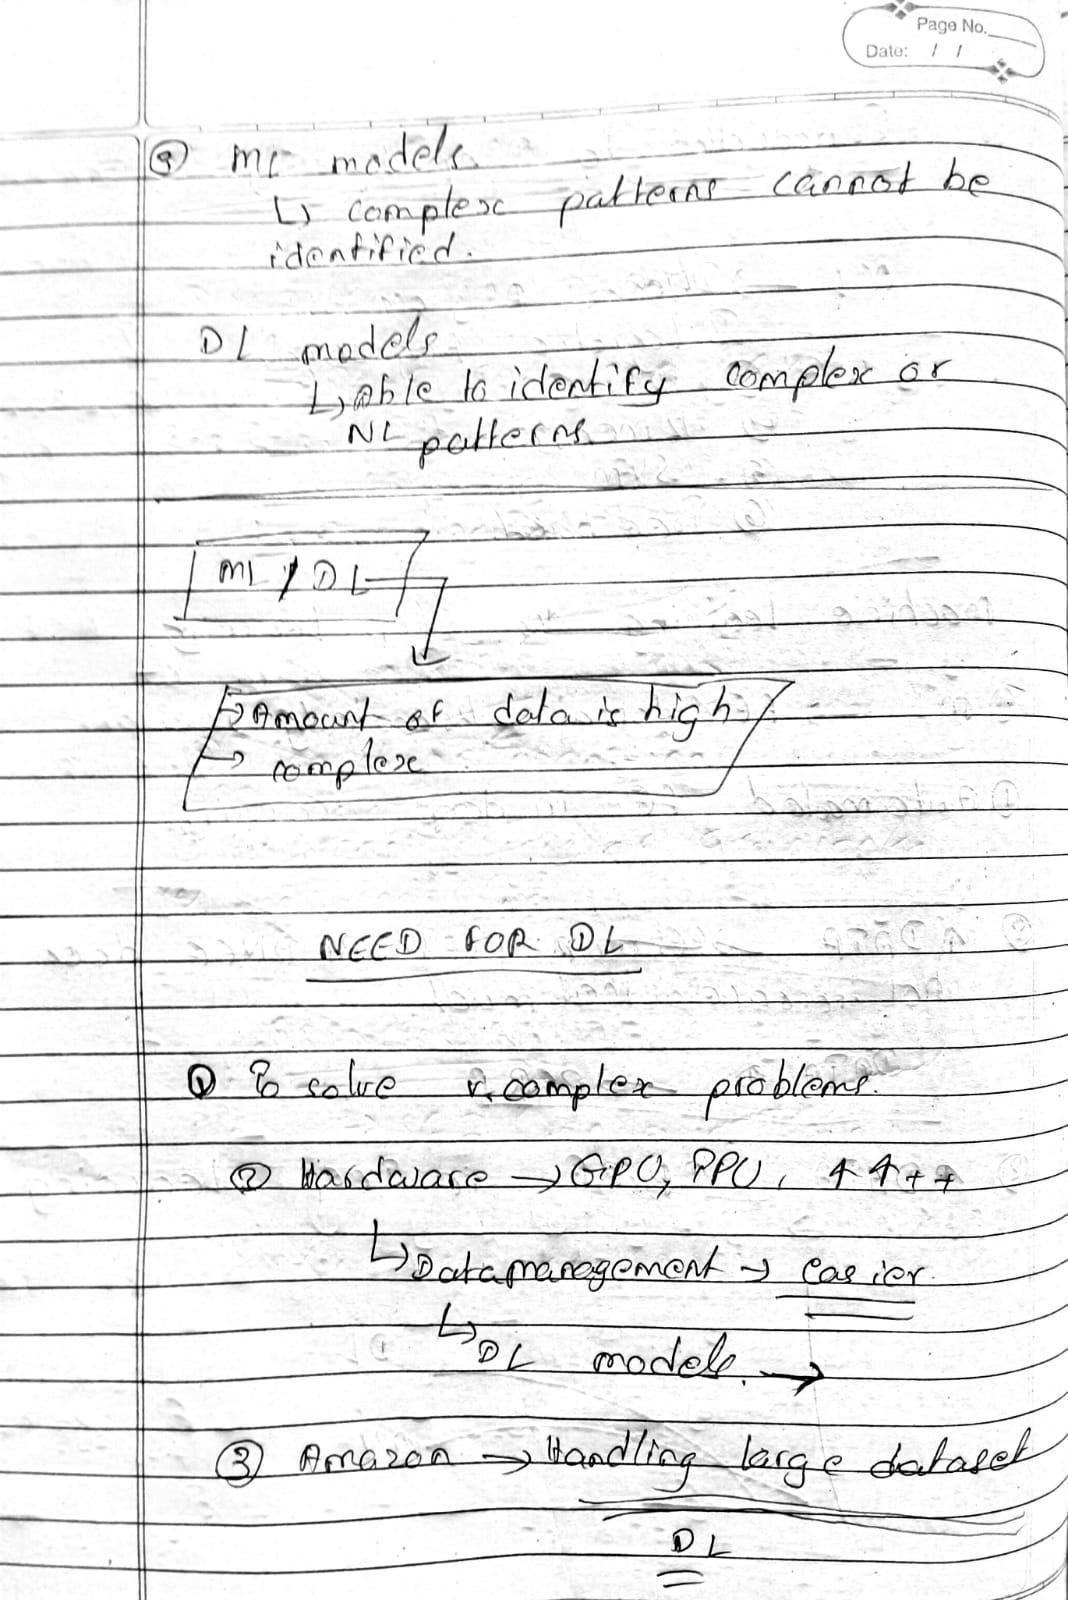 Page No.
Date: / /
③ ML models
↳ complex patterns cannot be
identified.
DL models
↳ able to identify complex or
NL patterns
ML / DL
→ Amount of data is high
→ complex
NEED FOR DL
① To solve v. complex problems.
② Hardware → GPU, PPU, ↑ ↑ + +
↳ Data management → easier
↳ DL models. →
③ Amazon → Handling large dataset
DL